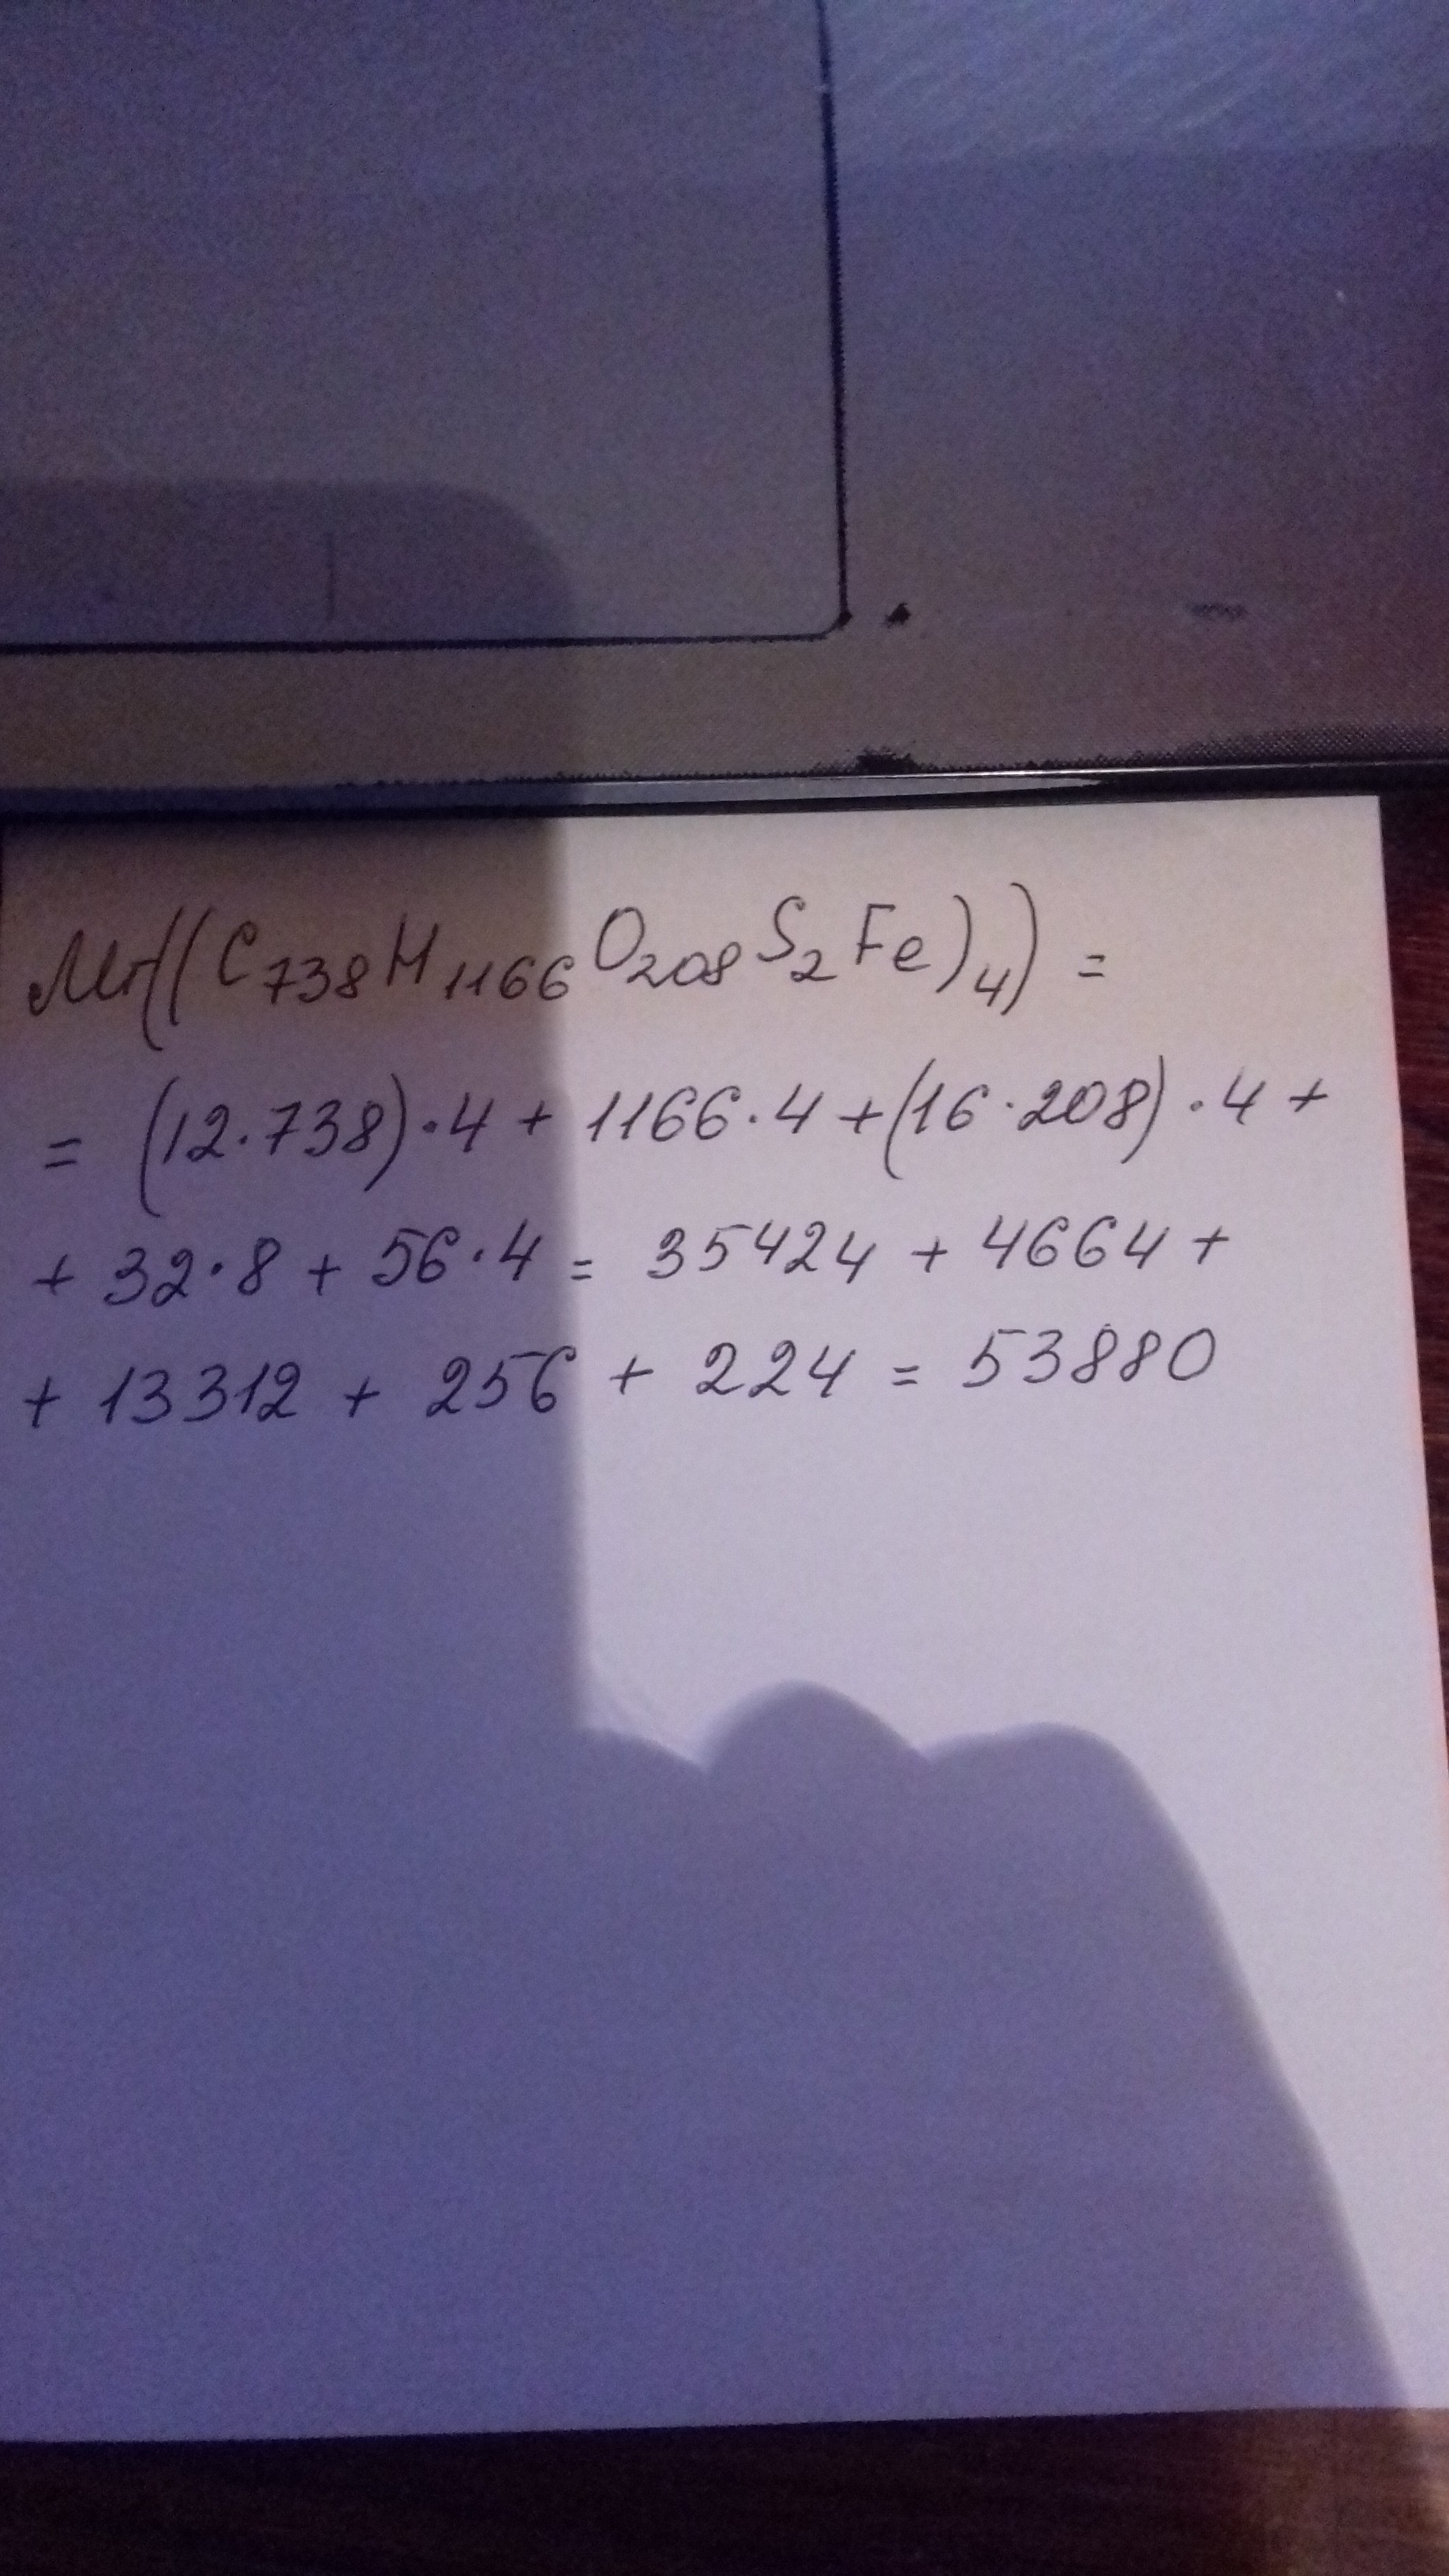 Mr((C₇₃₈H₁₁₆₆O₂₀₈S₂Fe)₄) =
= (12·738)·4 + 1166·4 + (16·208)·4 +
+ 32·8 + 56·4 = 35424 + 4664 +
+ 13312 + 256 + 224 = 53880